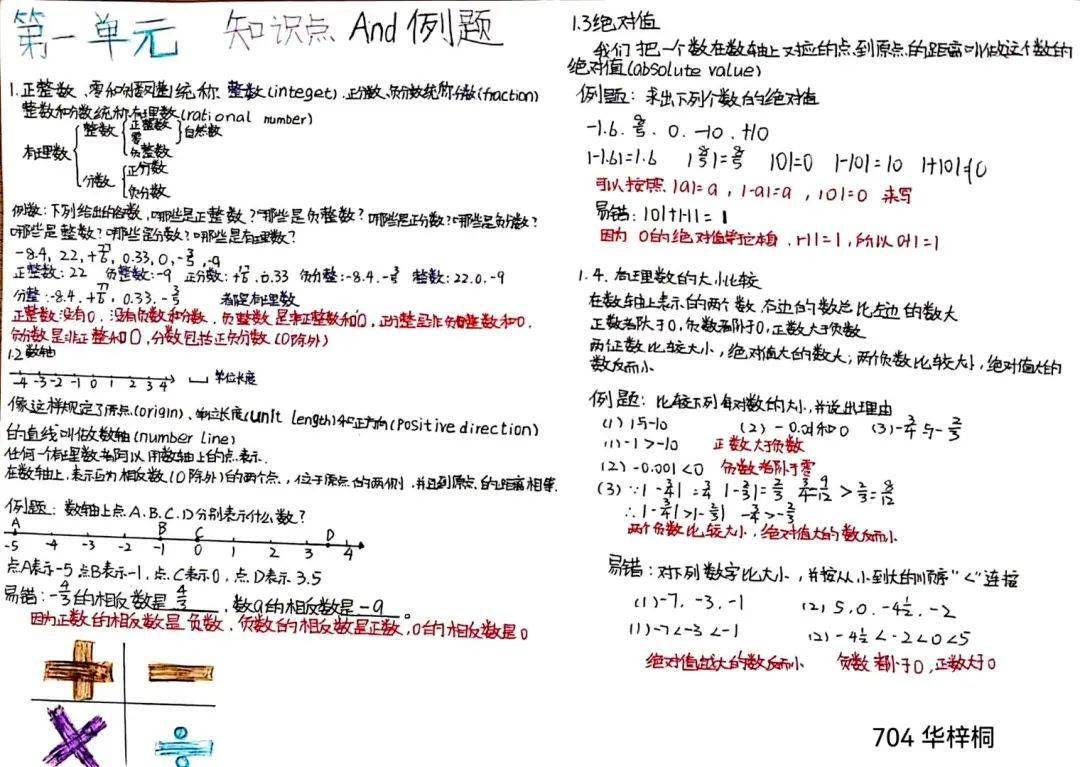 第一单元 知识点 And 例题
1.正整数、零和负整数统称整数(integet).正分数、负分数统称分数(fraction)
整数和分数统称有理数(rational number)
有理数
整数
正整数
零
自然数
负整数
分数
正分数
负分数
例数:下列给出的各数,哪些是正整数?哪些是负整数?哪些是正分数?哪些是负分数?
哪些是整数?哪些是分数?哪些是有理数?
-8.4, 22, +, 0.33, 0, -3/5, -9
正整数:22 负整数:-9 正分数:+ .0.33 负分整:-8.4.-3/5 整数:22.0.-9
分整:-8.4. + , 0.33. -3/5 都是有理数
正整数没有0,没有负数和分数,负整数是非正整和0,正分整是非负整数和0,
负分数是非正整和0,分数包括正负分数(0除外)
1.2数轴
-4 -3 -2 -1 0 1 2 3 4 单位长度
像这样规定了原点(origin)、单位长度(unit length)和正方向(positive direction)
的直线叫做数轴(number line)
任何一个有理数都可以用数轴上的点表示.
在数轴上,表示互为相反数(0除外)的两个点,位于原点的两侧,并且到原点的距离相等.
例题:数轴上点A.B.C.D分别表示什么数?
A B C D
-5 -4 -3 -2 -1 0 1 2 3 4
点A表示-5 点B表示-1,点C表示0,点D表示3.5
易错:-4/3的相反数是 4/3 ,数a的相反数是 -a 。
因为正数的相反数是负数、负数的相反数是正数,0的相反数是0
1.3绝对值
我们把一个数在数轴上对应的点到原点的距离叫做这个数的
绝对值(absolute value)
例题:求出下列个数的绝对值
-1.6. 8/5. 0. -10. +10
|-1.6|=1.6 |8/5|=8/5 |0|=0 |-10|=10 |+10|=10
可以按照|a|=a,|-a|=a,|0|=0 来写
易错:|0|+|-1|=1
因为0的绝对值等于本身,|-1|=1,所以0+1=1
1.4.有理数的大小比较
在数轴上表示的两个数右边的数总比左边的数大
正数都大于0,负数都小于0,正数大于负数
两个正数比较大小,绝对值大的数大;两个负数比较大小,绝对值大的
数反而小
例题:比较下列每对数的大小,并说出理由
(1)1与-10 (2)-0.01和0 (3)-3/4与-2/3
(1)-1>-10 正数大于负数
(2)-0.001<0 负数都小于零
(3)∵|-3/4|=3/4 |-2/3|=2/3 3/4=9/12>2/3=8/12
∴|-3/4|>|-2/3| -3/4>-2/3
两个负数比较大小,绝对值大的数反而小
易错:对下列数字比大小,并按从小到大的顺序"<"连接
(1)-7,-3,-1 (2)5,0,-4½,-2
(1)-7<-3<-1 (2)-4½<-2<0<5
绝对值越大的数反而小 负数都小于0,正数大于0
704 华梓桐